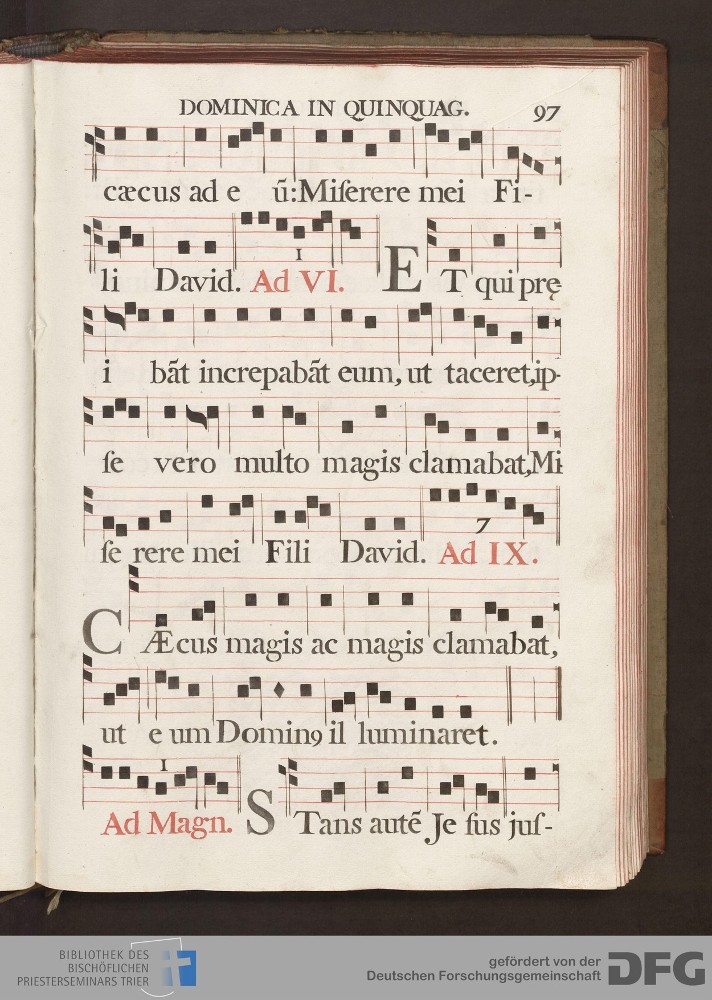 DOMINICA IN QUINQUAG. 97
cæcus ad e ũ: Miſerere mei Fi-
li David. Ad VI. 1 ET qui prę
i bãt increpabãt eum, ut taceret, ip-
ſe vero multo magis clamabat, Mi
ſe rere mei Fili David. Ad IX. 7
CÆcus magis ac magis clamabat,
ut e um Dominꝰ il luminaret.
Ad Magn. 1 STans autẽ Je ſus juſ-
BIBLIOTHEK DES
BISCHÖFLICHEN
PRIESTERSEMINARS TRIER
gefördert von der
Deutschen Forschungsgemeinschaft
DFG